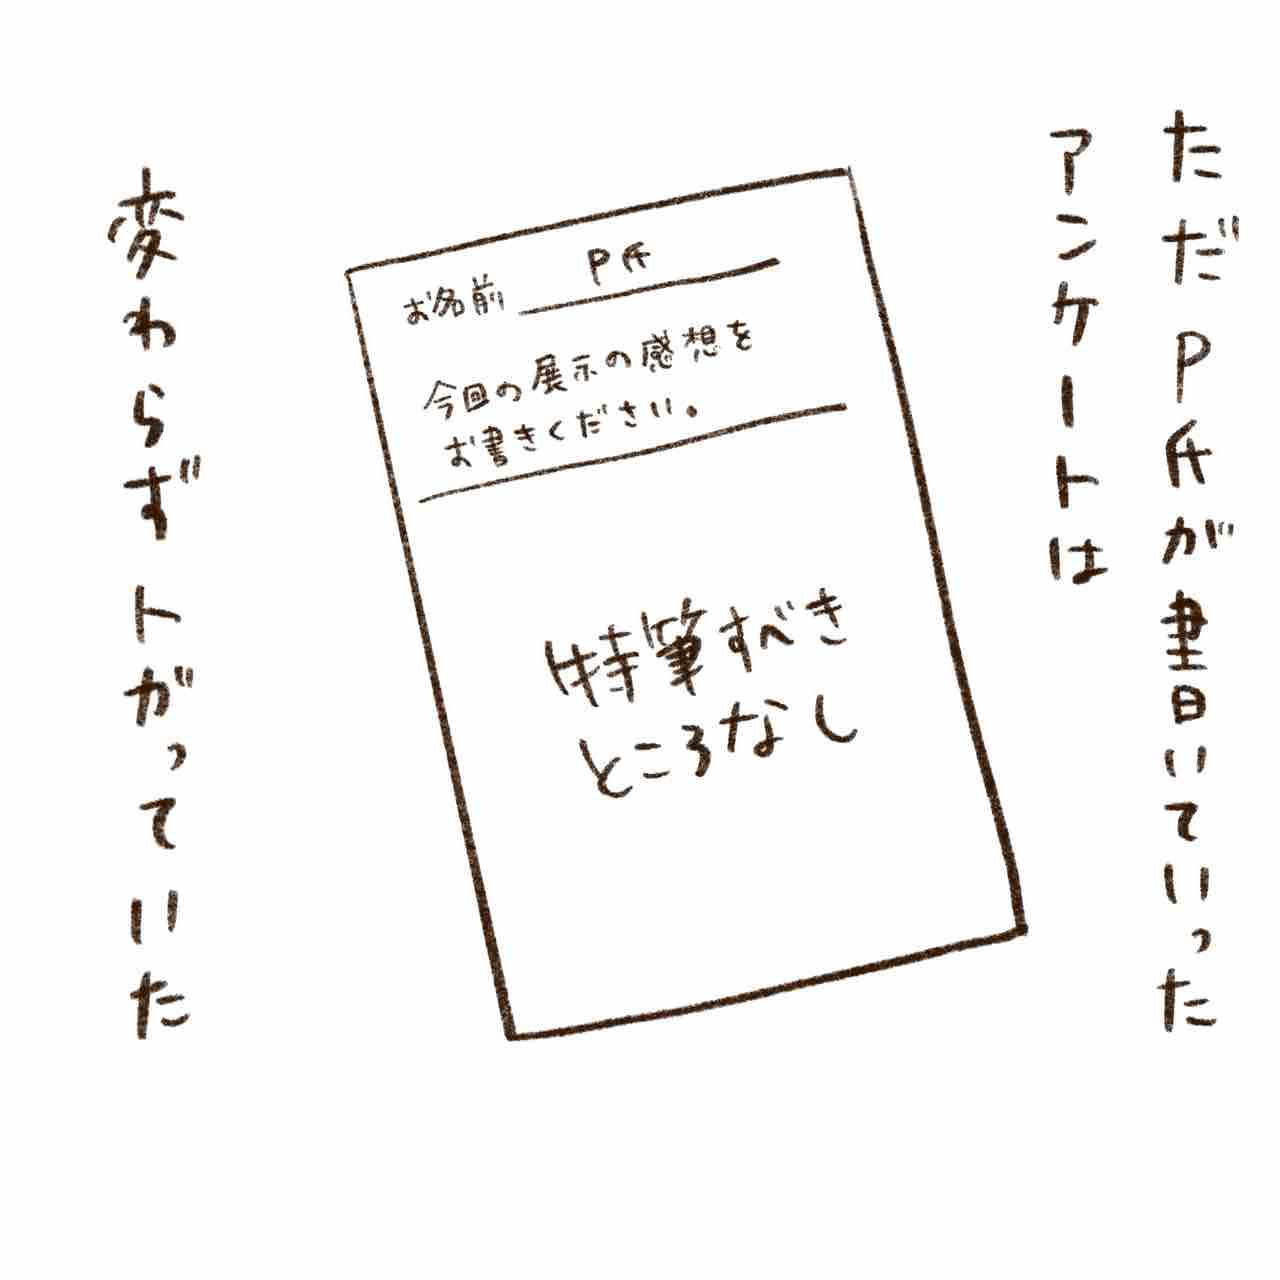 ただP氏が書いていった
アンケートは
お名前 P氏
今回の展示の感想を
お書きください。
特筆すべき
ところなし
変わらずトガっていた